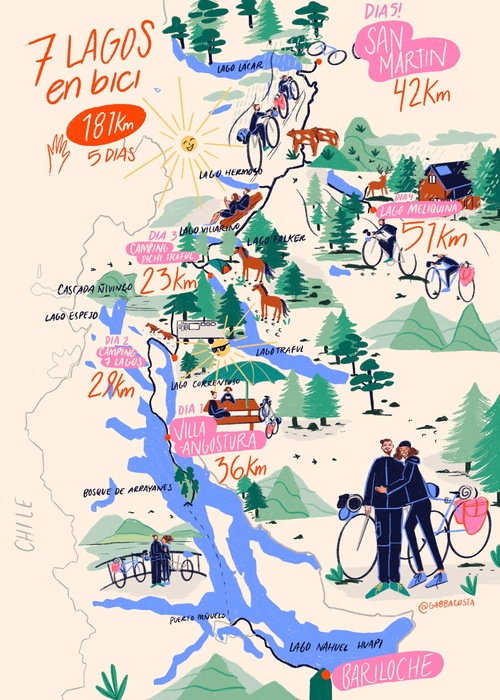 7 LAGOS
en bici
181Km
5 DIAS
DIA 5!
SAN
MARTIN
42Km
LAGO LACAR
LAGO HERMOSO
DIA 4
LAGO MELIQUINA
51Km
LAGO VILLARINO
LAGO FALKER
DIA 3
CAMPING
PICHI TRAFUL
23Km
CASCADA ÑIVINCO
LAGO ESPEJO
DIA 2
CAMPING
7 LAGOS
29Km
LAGO TRAFUL
LAGO CORRENTOSO
DIA 1
VILLA
ANGOSTURA
36Km
BOSQUE DE ARRAYANES
CHILE
@GABBACOSTA
PUERTO PAÑUELO
LAGO NAHUEL HUAPI
BARILOCHE